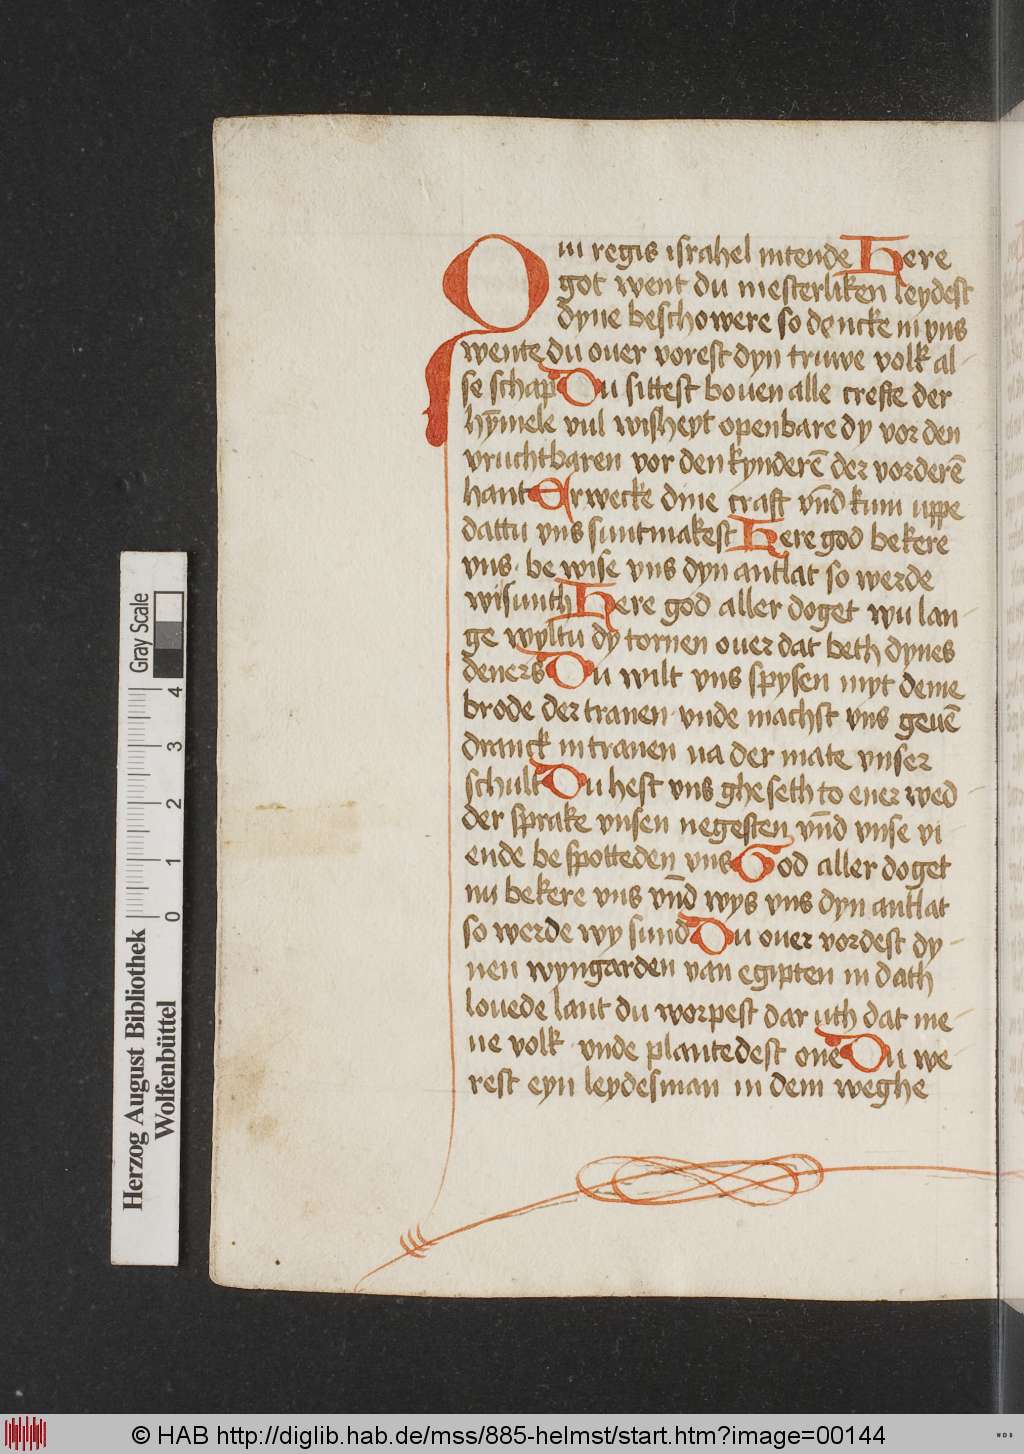 Qui regis israhel intende Here
got went du mesterliken leydest
dyne beschowere so dencke in vns
wente du ouer vorest dyn truwe volk al-
se schap Du sittest bouen alle crefte der
hȳmele vul wisheyt openbare dy vor den
vruchtbaren vor den kynderē der vorderē
hant Erwecke dine craft vn̄d kum uppe
dattu vns sunt makest Here god bekere
vns · be wise vns dyn antlat so werde
wi sunth Here god aller doget wu lan-
ge wyltu dy tornen ouer dat beth dynes
deners Du wilt vns spysen myt deme
brode der tranen · vnde machst vns geuē
dranck in tranen na der mate vnser
schult Du hest vns ghe seth to ener wed-
der sprake vnsen negesten vn̄d vnse vi-
ende be spotteden vns God aller doget
nu bekere vns vn̄d wys vns dyn antlat
so werde wy sund Du ouer vordest dy-
nen wyngarden van egipten in dath
louede lant du worpest dar uth dat me-
ne volk · vnde plantedest one Du we-
rest eyn leydesman in dem weghe
Gray Scale
4
3
2
1
0
Herzog August Bibliothek
Wolfenbüttel
© HAB http://diglib.hab.de/mss/885-helmst/start.htm?image=00144